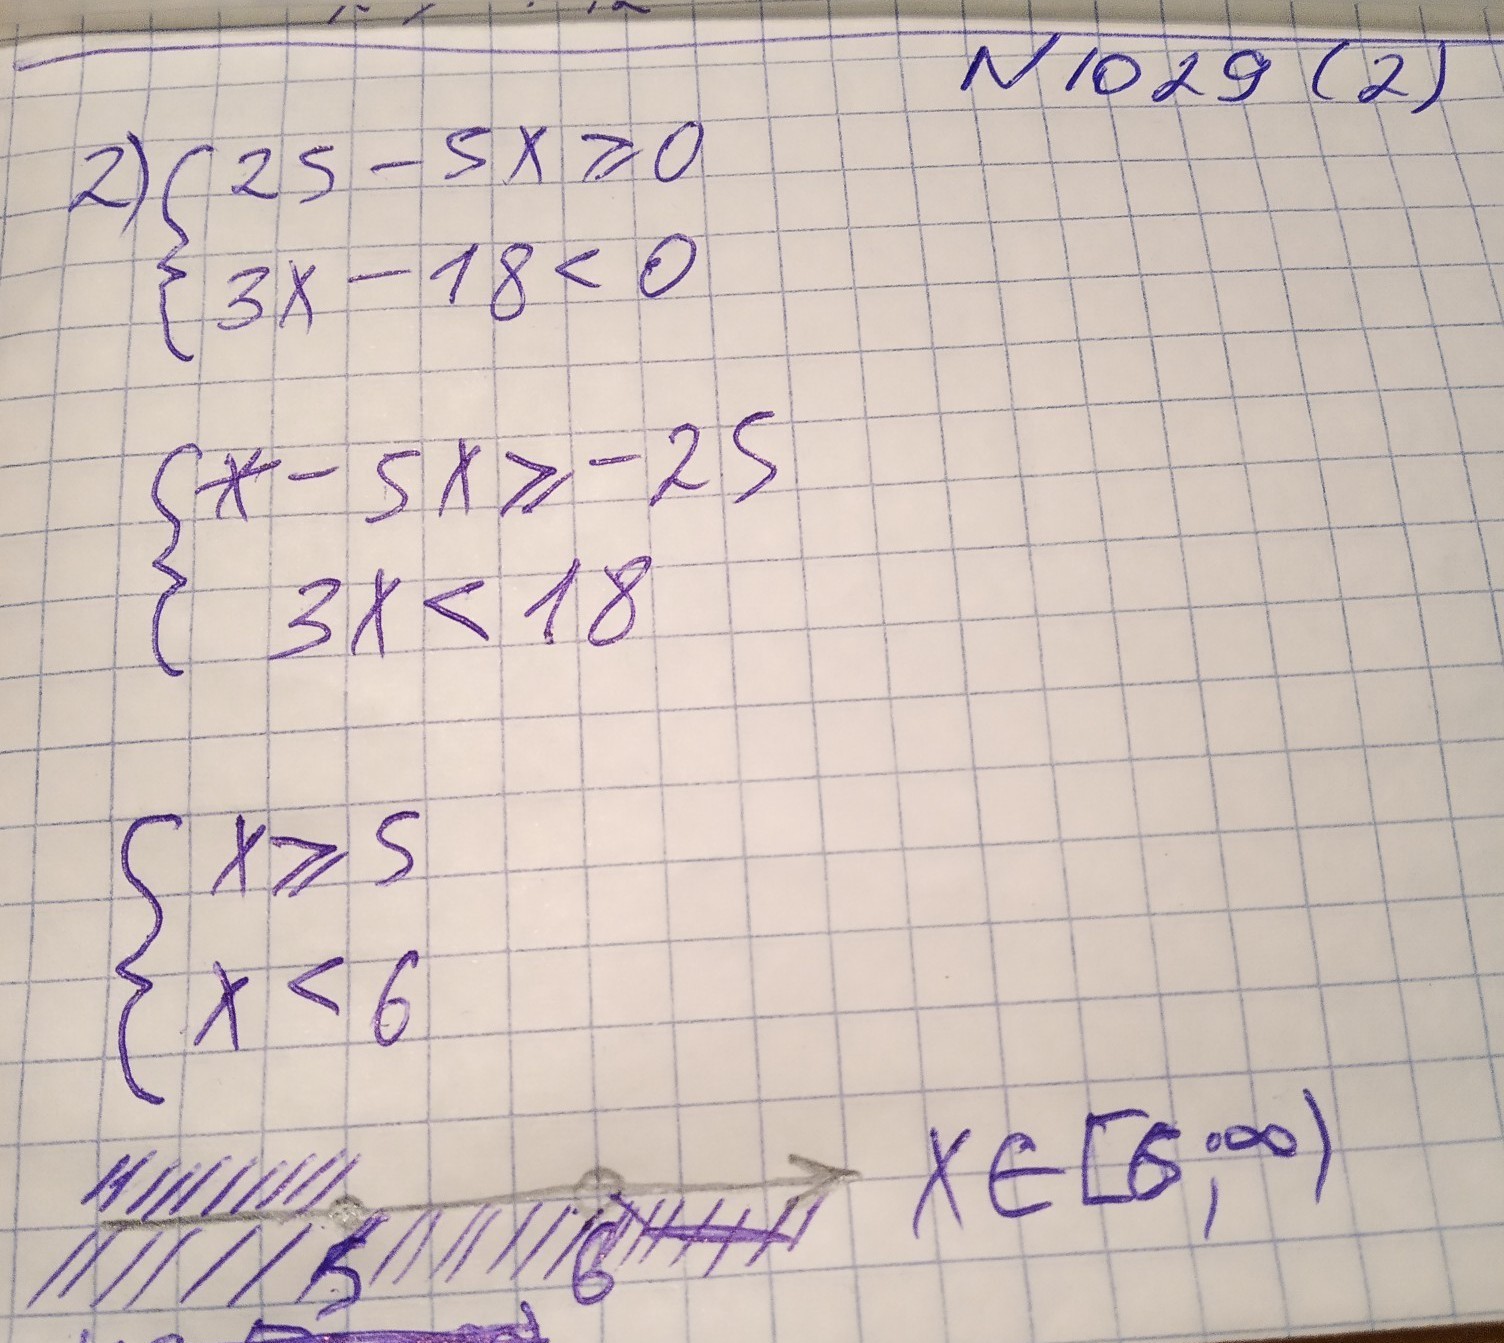 N1029 (2)
2) { 25 - 5x ⩾ 0
3x - 18 < 0
{ - 5x ⩾ - 25
3x < 18
{ x ⩾ 5
x < 6
5 6
x ∈ [6; ∞)